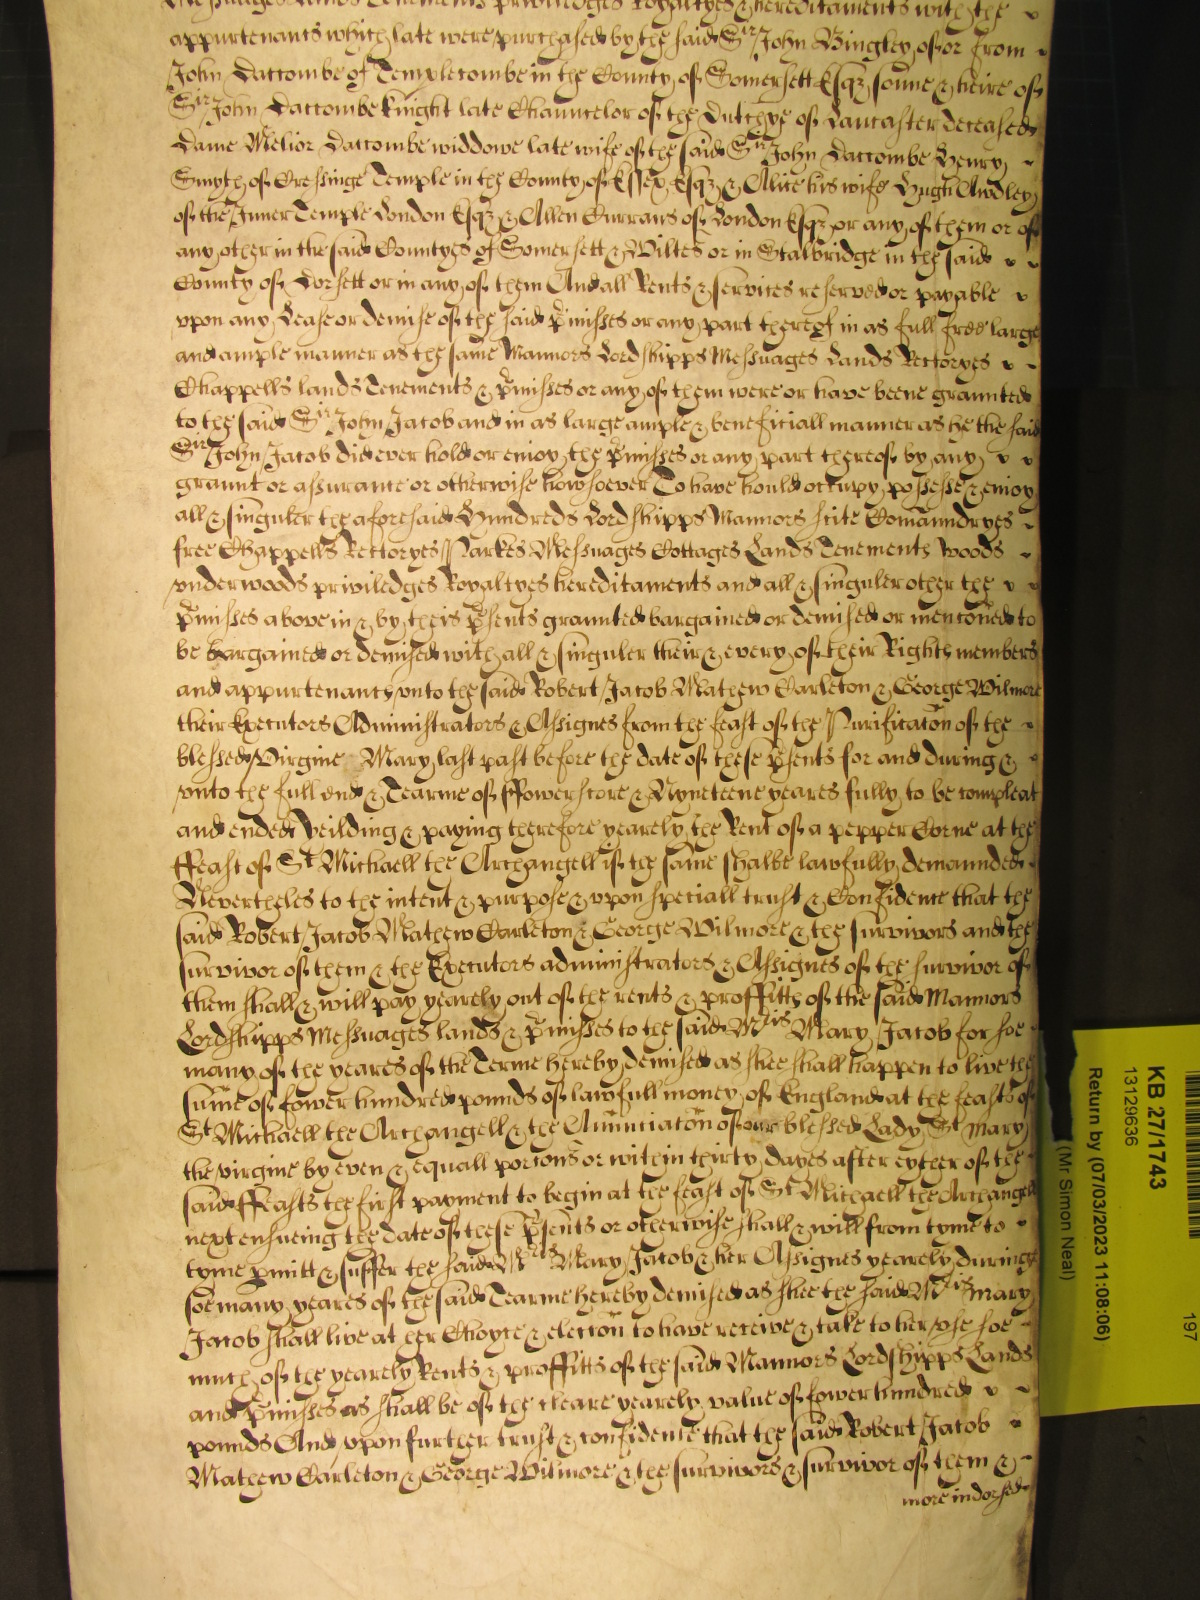 Messuages Lands Tenements priviledges Royaltyes & hereditaments with the
appurtenants which late were purchased by the said Sir John Bingley of or from
John Daccombe of Templecombe in the County of Somersett Esqr sonne & heire of
Sir John Daccombe knight late Chauncelor of the Dutchye of Lancaster deceased
Dame Melior Daccombe widdowe late wife of the said Sir John Daccombe Henry
Smyth of Cressinge Temple in the County of Essex Esqr & Alice his wife Hugh Audley
of the Inner Temple London Esqr & Allen Currans of London Esqr or any of them or of
any other in the said Countyes of Somersett & Wiltes or in Stalbridge in the said
County of Dorsett or in any of them And all Rents & services reserved or payable
vpon any Lease or demise of the said p̃misses or any part thereof in as full free large
and ample manner as the same Mannors Lordshipps Messuages Lands Rectoryes
Chappells lands Tenements & p̃misses or any of them were or have beene graunted
to the said Sir John Jacob and in as large ample & beneficiall manner as he the said
Sir John Jacob did ever hold or enioy the p̃misses or any part thereof by any
graunt or assurance or otherwise howsoever To have hould occupy possesse & enioy
all & singuler the aforesaid Hundreds Lordshipps Mannors scite Com̃anndryes
free Chappells Rectoryes Parkes Messuages Cottages Lands Tenements Woods
vnderwoods priviledges Royaltyes hereditaments and all & singuler other the
p̃misses above in & by theis p̃sents graunted bargained or demised or menc̃oned to
be bargained or demised with all & singuler their & every of their Rights members
and appurtenants vnto the said Robert Jacob Mathew Carleton & George Wilmore
their Executors Administrators & Assignes from the feast of the Purificac̃on of the
blessed Virgine Mary last past before the date of these p̃sents for and during &
vnto the full end & Tearme of ffower score & Nyneteene yeares fully to be compleat
and ended Yeilding & paying therefore yearely the Rent of a pepper Corne at the
ffeast of St Michaell the Archangell if the same shalbe lawfully demaunded
Nevertheles to the intent & purpose & vpon speciall trust & Confidence that the
said Robert Jacob Mathew Carleton & George Wilmore & the survivors and the
survivor of them & the Executors administrators & Assignes of the survivor of
them shall & will pay yearely out of the rents & proffitts of the said Mannors
Lordshipps Messuages lands & p̃misses to the said Mris Mary Jacob for soe
many of the yeares of the Terme hereby demised as shee shall happen to live the
sum̃e of fower hundred pounds of lawfull money of England at the feasts of
St Michaell the Archangell & the Anunciac̃on of our blessed Lady St Mary
the virgine by even & equall porc̃ons or within thirty dayes after eyther of the
said ffeasts the first payment to begin at the feast of St Michaell the Archangell
next ensueing the date of these p̃sents or otherwise shall & will from tyme to
tyme p̱mitt & suffer the said Mris Mary Jacob & her Assignes yearely during
soe many yeares of the said Tearme hereby demised as shee the said Mris Mary
Jacob shall live at her Choyce & elecc̃on to have receive & take to her vse soe
much of the yearely Rents & proffitts of the said Mannors Lordshipps Lands
and p̃misses as shall be of the cleare yearely value of fower hundred
pounds And vpon further trust & confidence that the said Robert Jacob
Mathew Carleton & George Wilmore & the survivors & survivor of them &
more indorsed
KB 27/1743
13129636
Return by (07/03/2023 11:08:06)
(Mr Simon Neal)
197